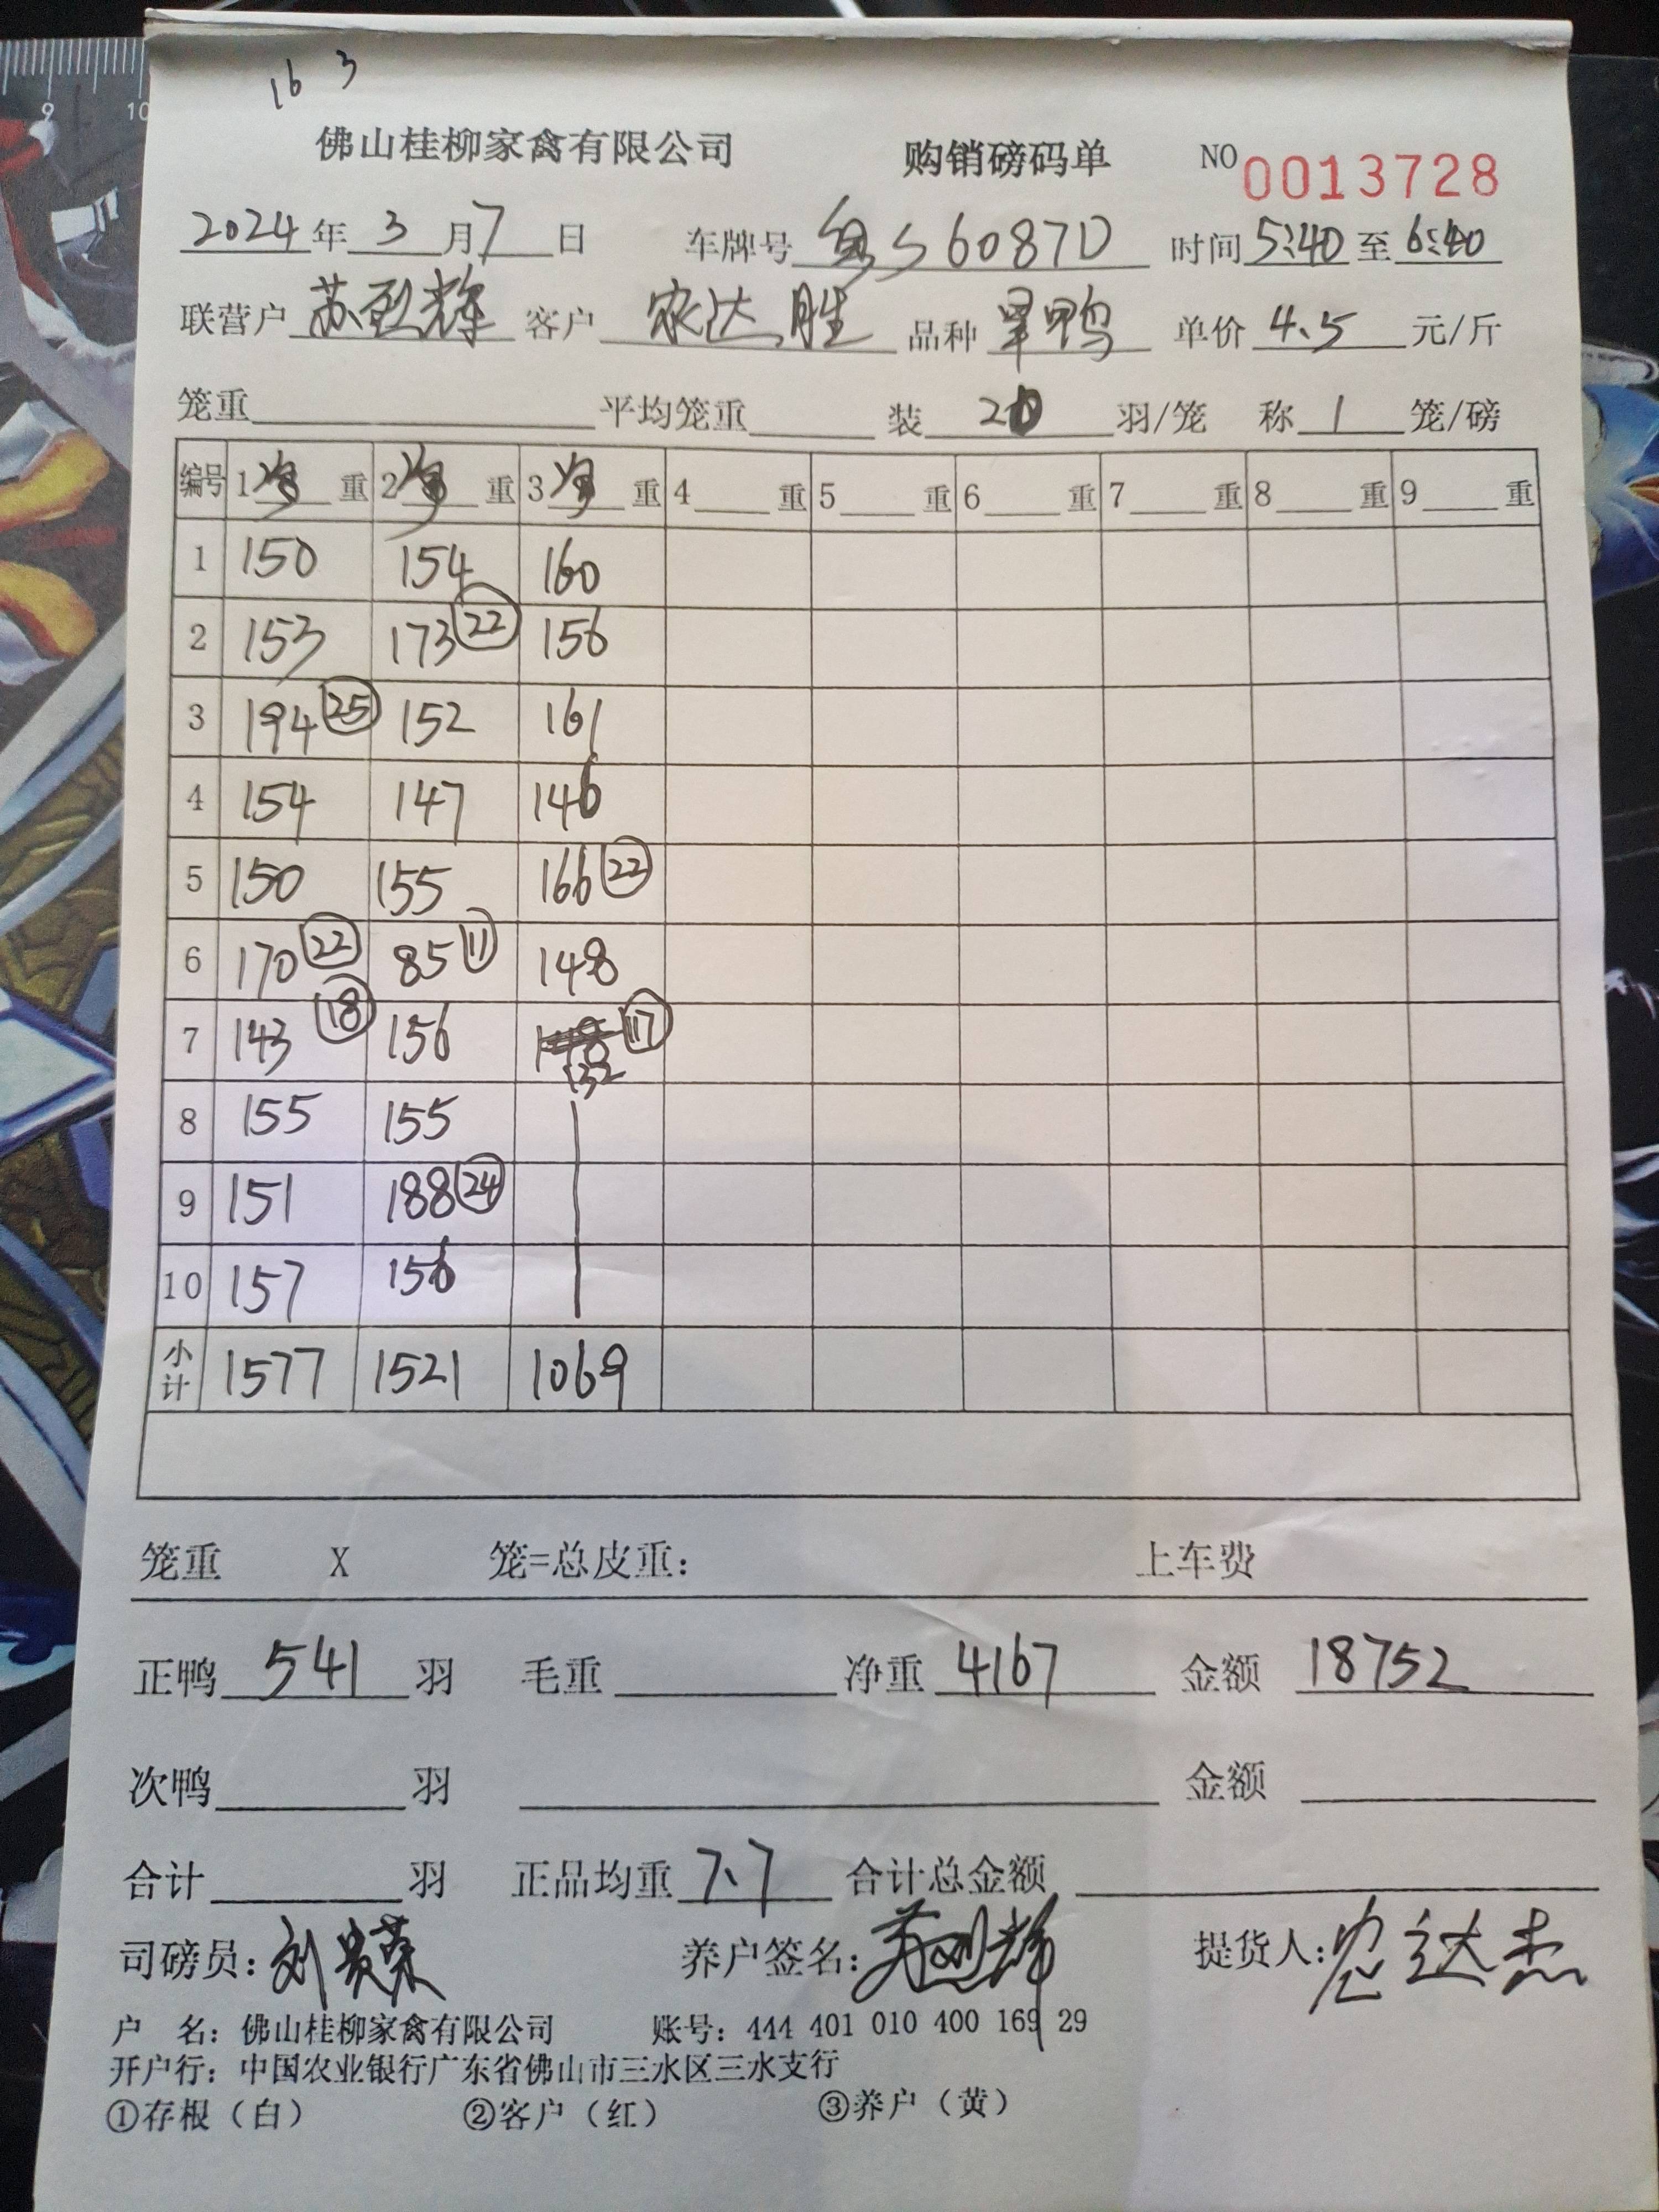 16 3
佛山桂柳家禽有限公司 购销磅码单 NO 0013728
2024年 3 月 7 日 车牌号 S6087D 时间 5:40 至 6:40
联营户 苏 辉 客户 农达胜 品种 旱鸭 单价 4.5 元/斤
笼重 平均笼重 装 20 羽/笼 称 1 笼/磅
编号 1 净 重 2 净 重 3 净 重 4 重 5 重 6 重 7 重 8 重 9 重
1 150 154 160
2 153 173 ㉒ 156
3 194 ㉕ 152 161
4 154 147 146
5 150 155 166 ㉒
6 170 ㉒ 85 ⑪ 148
7 143 ⑱ 156 132 ⑰
8 155 155
9 151 188 ㉔
10 157 156
小计 1577 1521 1069
笼重 X 笼=总皮重： 上车费
正鸭 541 羽 毛重 净重 4167 金额 18752
次鸭 羽 金额
合计 羽 正品均重 7.7 合计总金额
司磅员：刘贵荣 养户签名：苏 辉 提货人：农达杰
户 名：佛山桂柳家禽有限公司 账号：444 401 010 400 169 29
开户行：中国农业银行广东省佛山市三水区三水支行
①存根（白） ②客户（红） ③养户（黄）